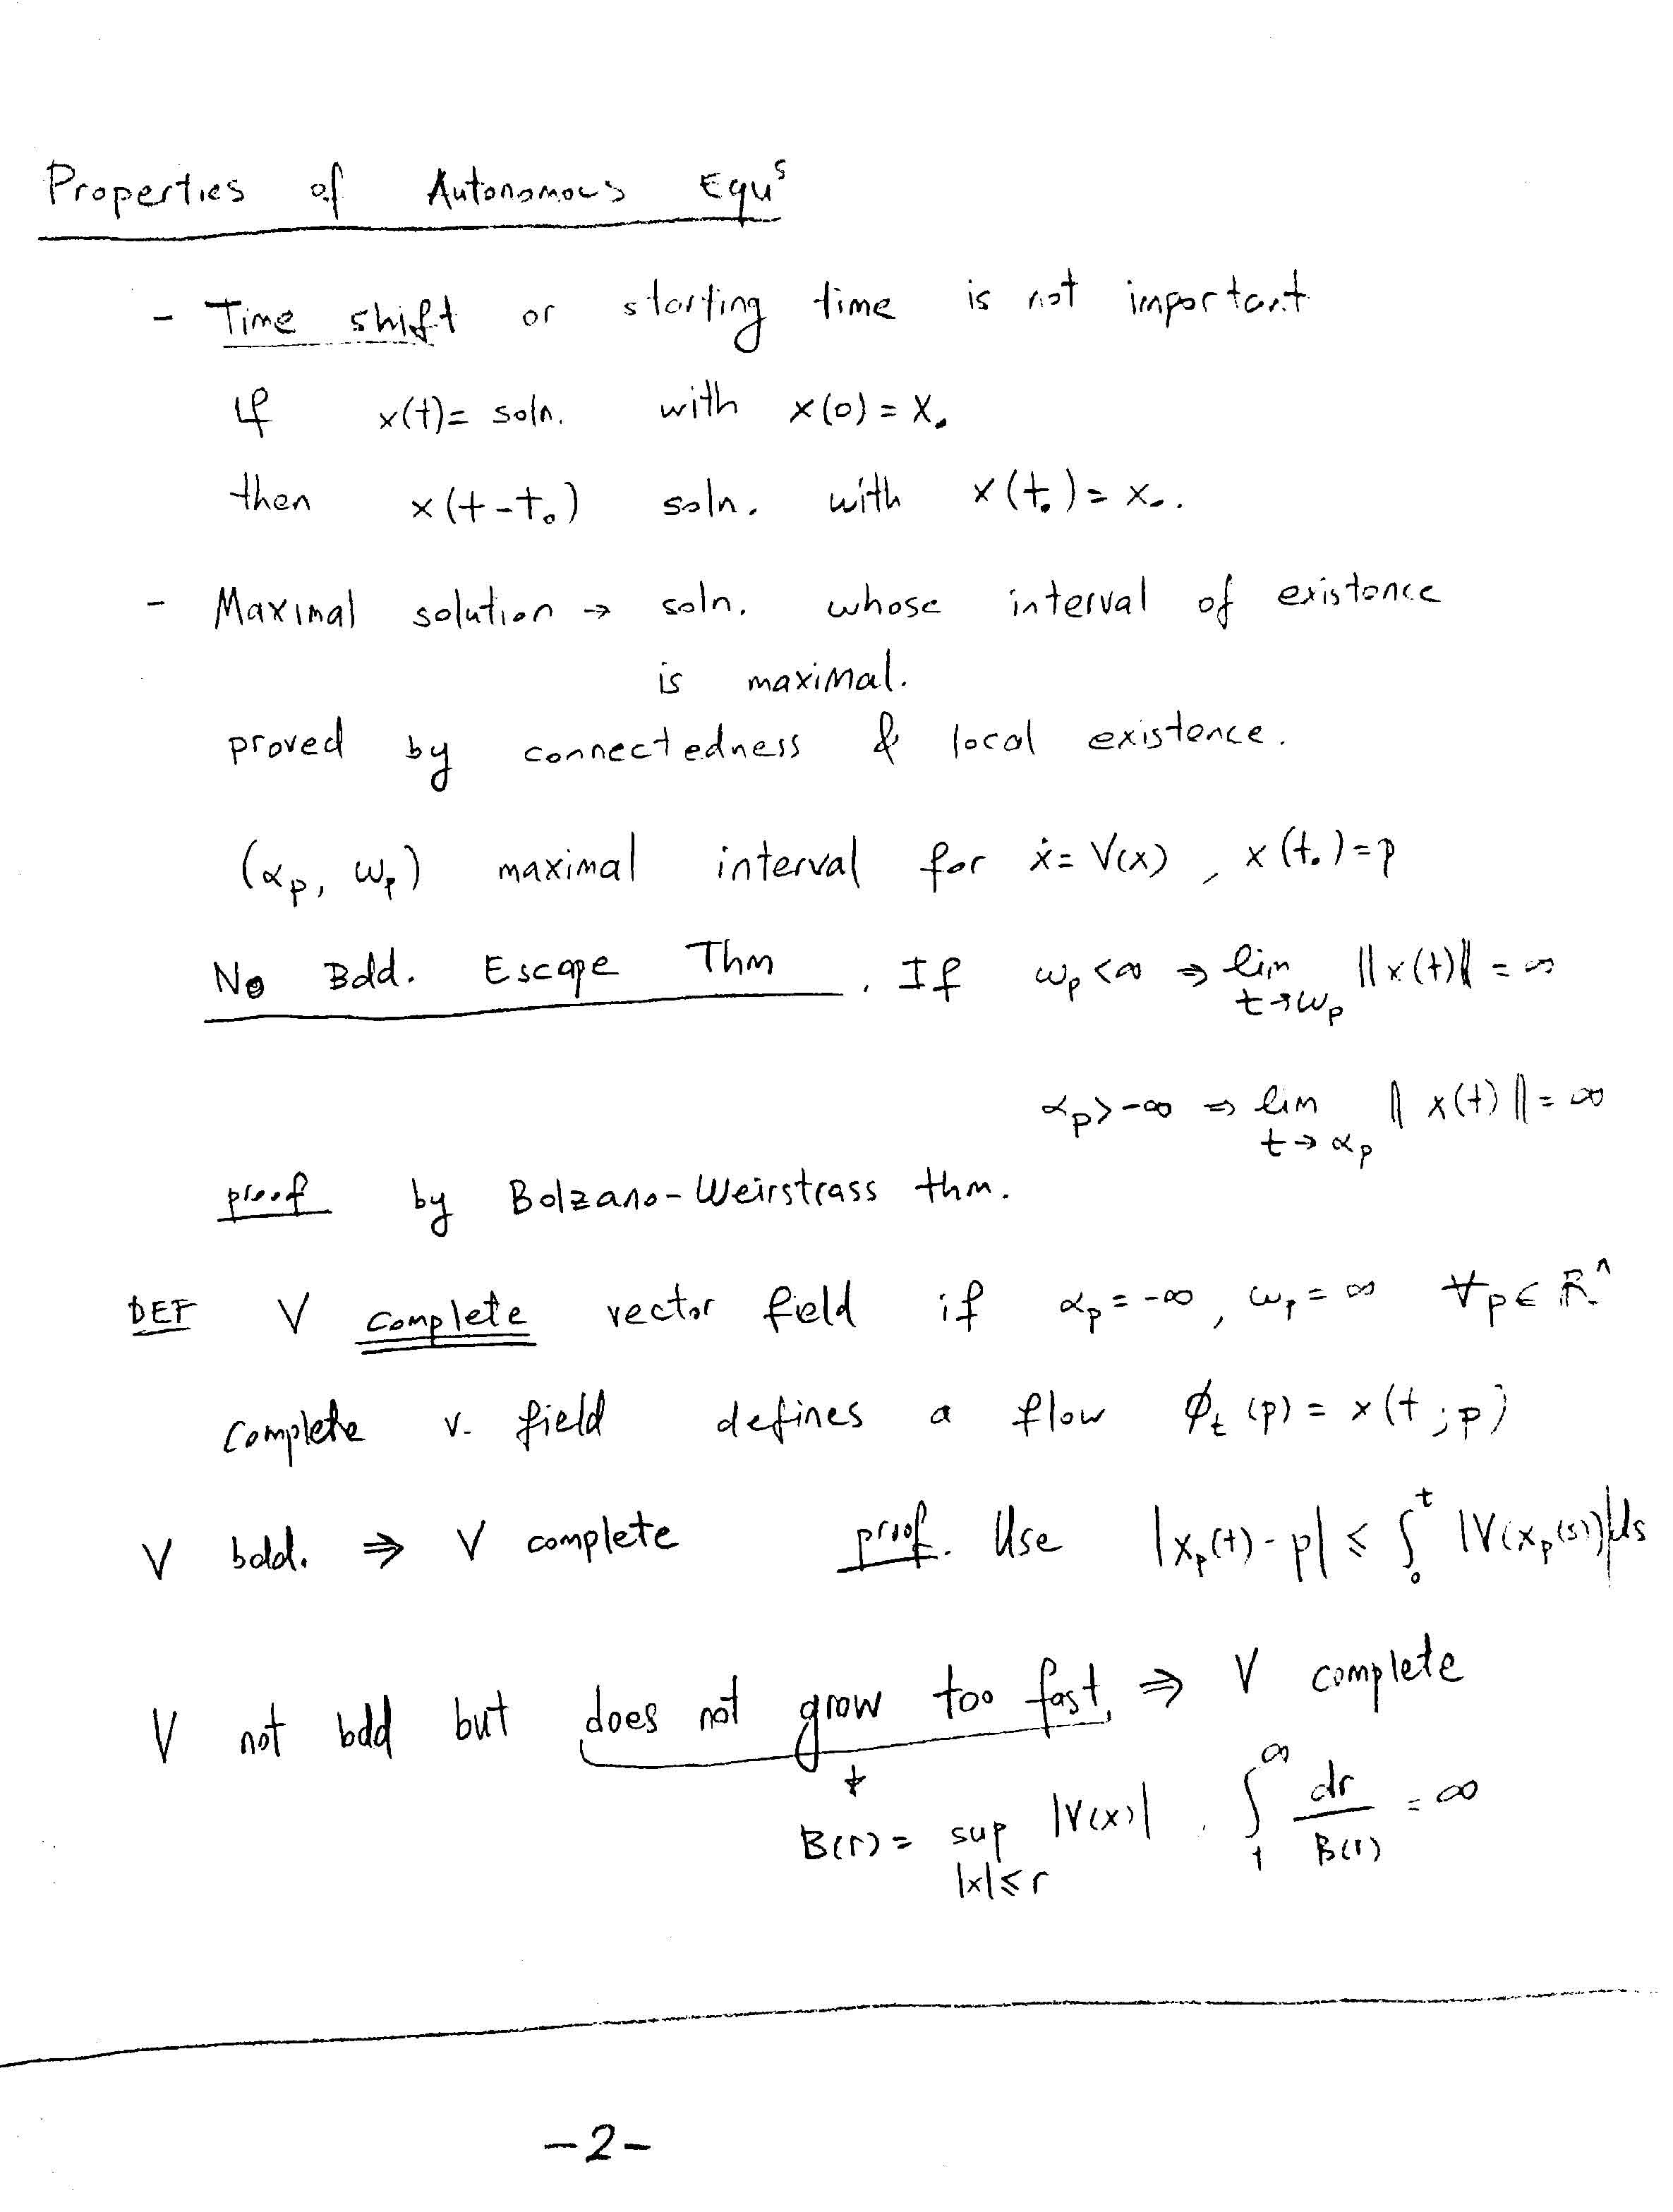 Properties of Autonomous Equˢ
- Time shift or starting time is not important
If x(t) = soln. with x(0) = x₀
then x(t-t₀) soln. with x(t₀) = x₀.
- Maximal solution → soln. whose interval of existence
is maximal.
proved by connectedness & local existence.
(αₚ, ωₚ) maximal interval for ẋ = V(x), x(t₀) = p
No Bdd. Escape Thm. If ωₚ < ∞ ⇒ lim_{t→ωₚ} ||x(t)|| = ∞
αₚ > -∞ ⇒ lim_{t→αₚ} ||x(t)|| = ∞
proof by Bolzano-Weirstrass thm.
DEF V complete vector field if αₚ = -∞, ωₚ = ∞ ∀p ∈ ℝⁿ
complete v. field defines a flow ϕₜ(p) = x(t;p)
V bdd. ⇒ V complete proof. Use |xₚ(t) - p| ≤ ∫₀ᵗ |V(xₚ(s))|ds
V not bdd but does not grow too fast ⇒ V complete
B(r) = sup_{|x|≤r} |V(x)|. ∫₁^∞ dr/B(r) = ∞
-2-